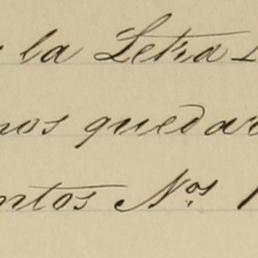 la Letra
nos quedar
ntos Nos